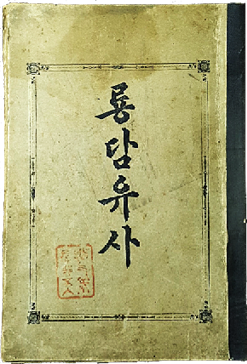 룡담유사